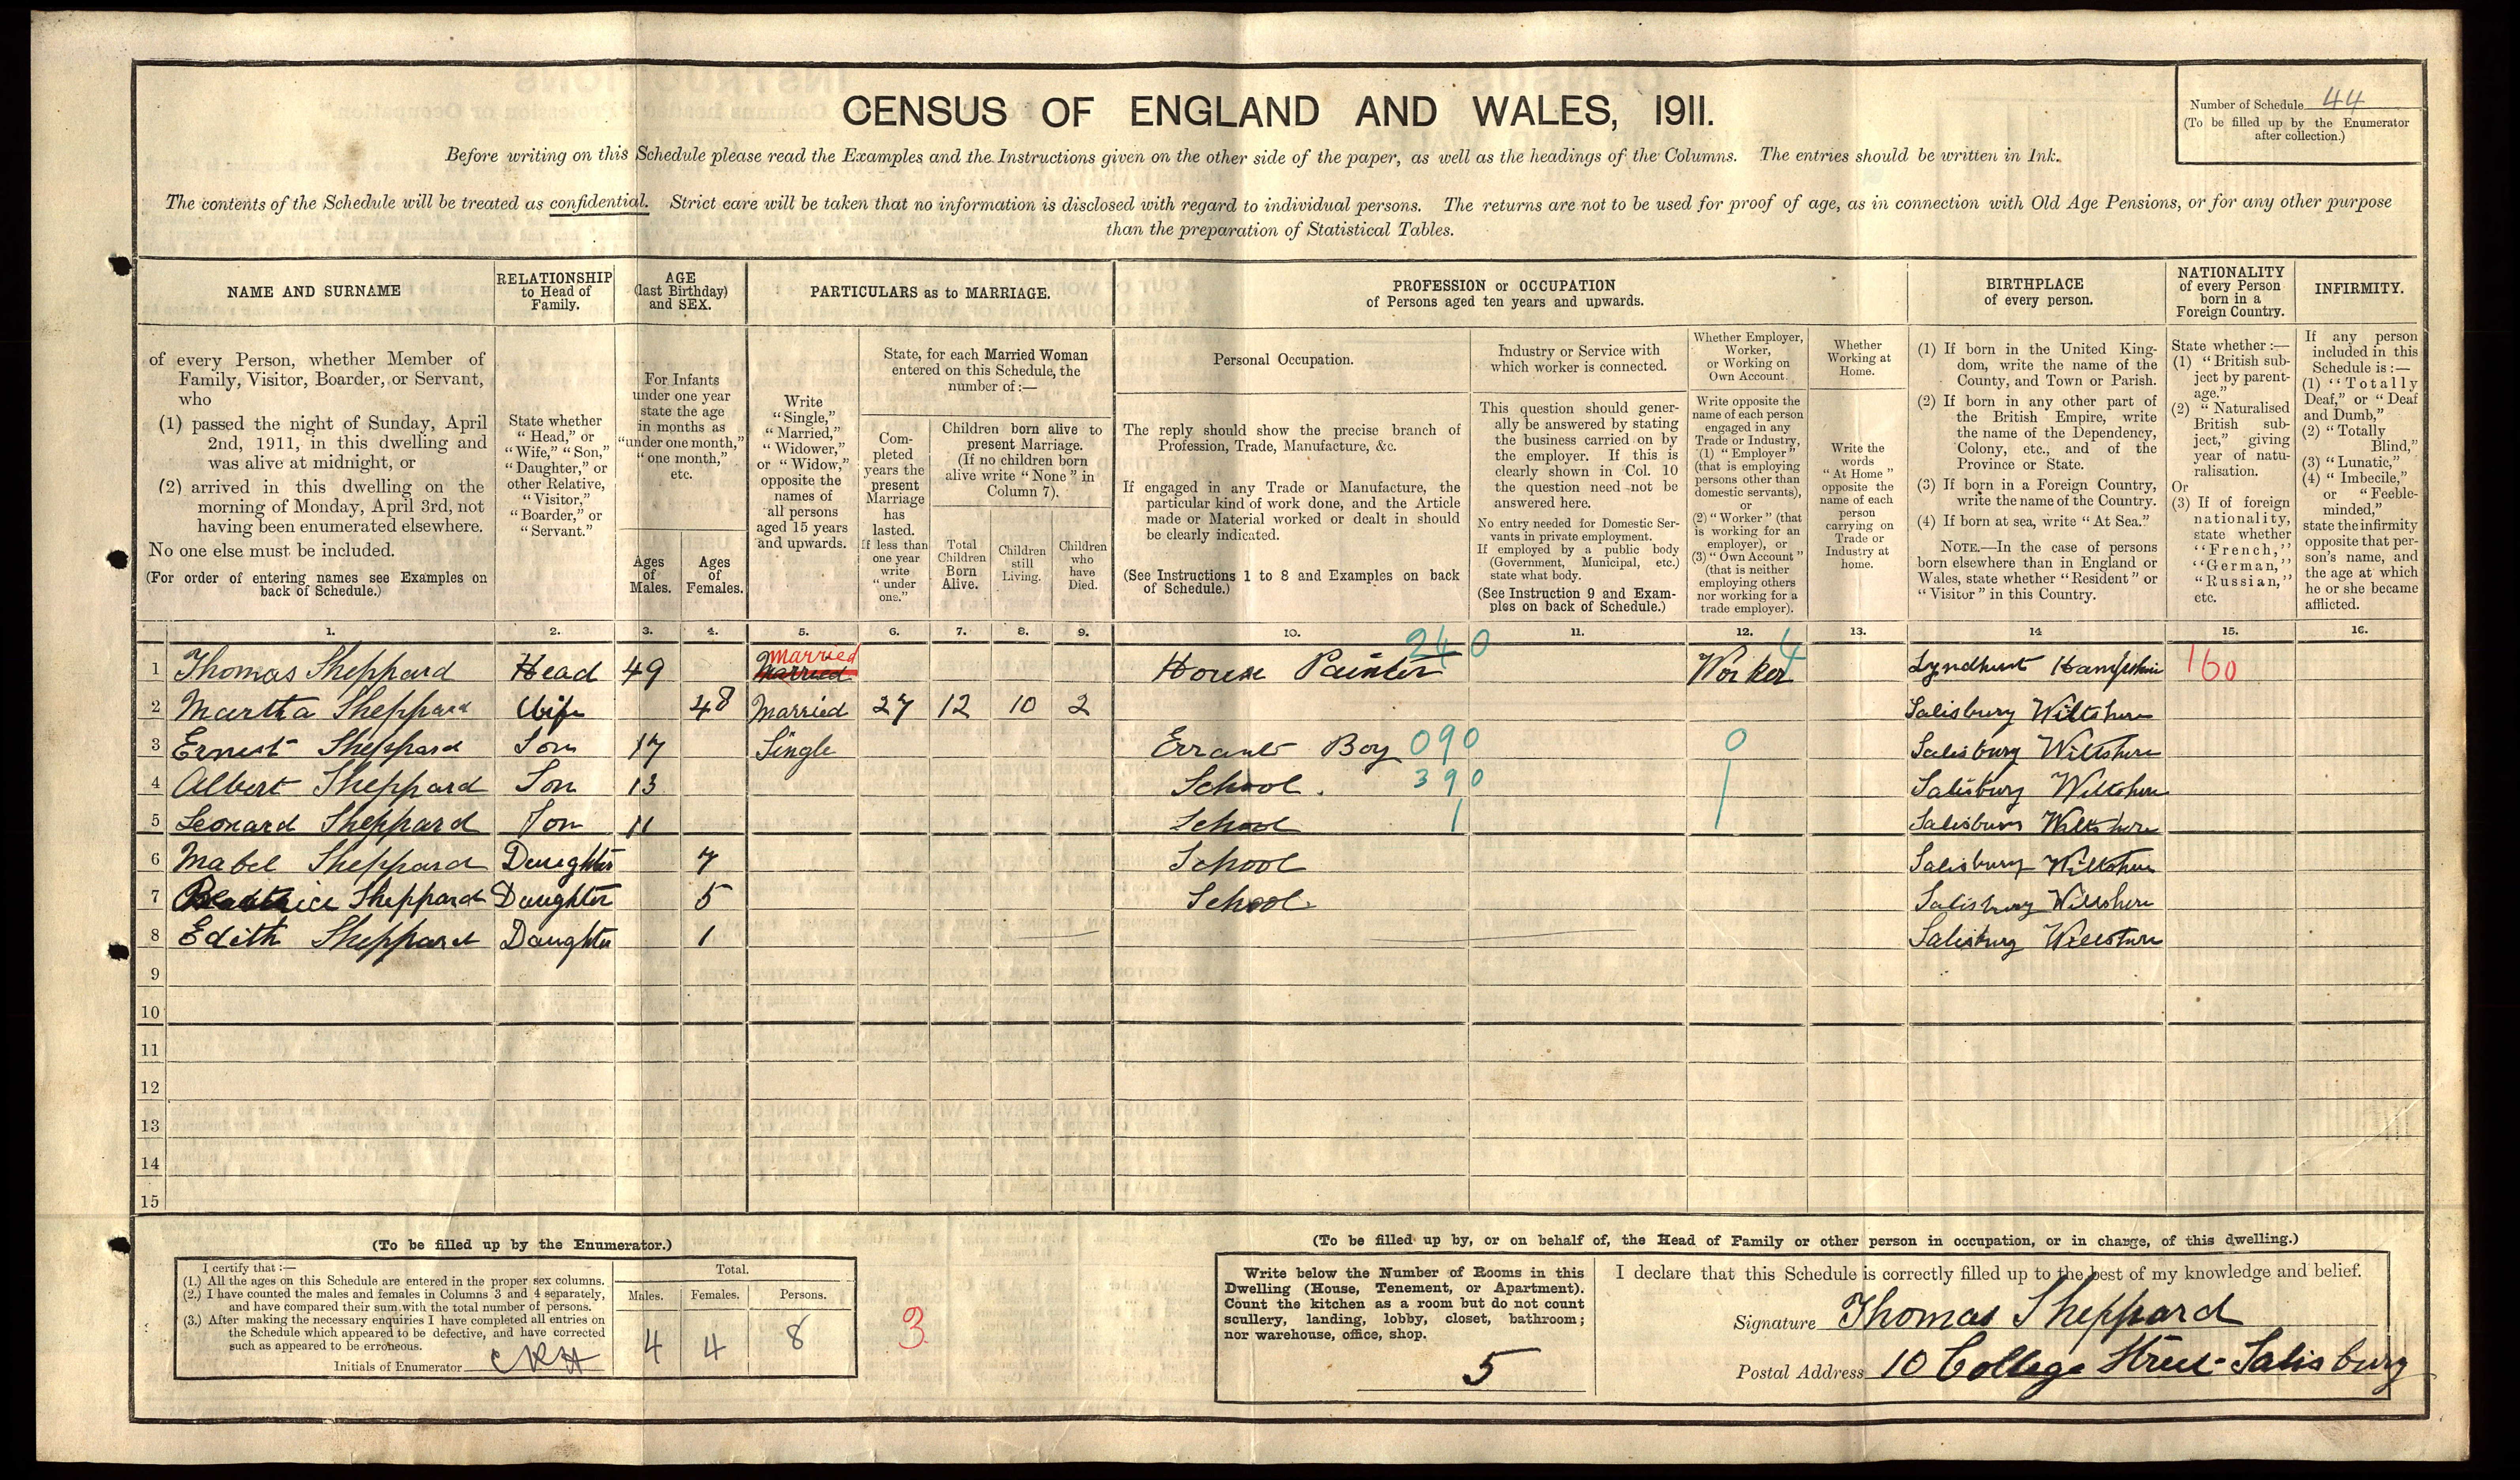 CENSUS OF ENGLAND AND WALES, 1911.
Number of Schedule 44
(To be filled up by the Enumerator
after collection.)
Before writing on this Schedule please read the Examples and the Instructions given on the other side of the paper, as well as the headings of the Columns. The entries should be written in Ink.
The contents of the Schedule will be treated as confidential. Strict care will be taken that no information is disclosed with regard to individual persons. The returns are not to be used for proof of age, as in connection with Old Age Pensions, or for any other purpose
than the preparation of Statistical Tables.
NAME AND SURNAME
of every Person, whether Member of
Family, Visitor, Boarder, or Servant,
who
(1) passed the night of Sunday, April
2nd, 1911, in this dwelling and
was alive at midnight, or
(2) arrived in this dwelling on the
morning of Monday, April 3rd, not
having been enumerated elsewhere.
No one else must be included.
(For order of entering names see Examples on
back of Schedule.)
RELATIONSHIP
to Head of
Family.
State whether
"Head," or
"Wife," "Son,"
"Daughter," or
other Relative,
"Visitor,"
"Boarder," or
"Servant."
AGE
(last Birthday)
and SEX.
For Infants
under one year
state the age
in months as
"under one month,"
"one month,"
etc.
Ages
of
Males.
Ages
of
Females.
PARTICULARS as to MARRIAGE.
Write
"Single,"
"Married,"
"Widower,"
or "Widow,"
opposite the
names of
all persons
aged 15 years
and upwards.
State, for each Married Woman
entered on this Schedule, the
number of:—
Com-
pleted
years the
present
Marriage
has
lasted.
If less than
one year
write
"under
one."
Children born alive to
present Marriage.
(If no children born
alive write "None" in
Column 7).
Total
Children
Born
Alive.
Children
still
Living.
Children
who
have
Died.
PROFESSION or OCCUPATION
of Persons aged ten years and upwards.
Personal Occupation.
The reply should show the precise branch of
Profession, Trade, Manufacture, &c.
If engaged in any Trade or Manufacture, the
particular kind of work done, and the Article
made or Material worked or dealt in should
be clearly indicated.
(See Instructions 1 to 8 and Examples on back
of Schedule.)
Industry or Service with
which worker is connected.
This question should gener-
ally be answered by stating
the business carried on by
the employer. If this is
clearly shown in Col. 10
the question need not be
answered here.
No entry needed for Domestic Ser-
vants in private employment.
If employed by a public body
(Government, Municipal, etc.)
state what body.
(See Instruction 9 and Exam-
ples on back of Schedule.)
Whether Employer,
Worker,
or Working on
Own Account.
Write opposite the
name of each person
engaged in any
Trade or Industry,
(1) "Employer"
(that is employing
persons other than
domestic servants),
or
(2) "Worker" (that
is working for an
employer), or
(3) "Own Account"
(that is neither
employing others
nor working for a
trade employer).
Whether
Working at
Home.
Write the
words
"At Home"
opposite the
name of each
person
carrying on
Trade or
Industry at
home.
BIRTHPLACE
of every person.
(1) If born in the United King-
dom, write the name of the
County, and Town or Parish.
(2) If born in any other part of
the British Empire, write
the name of the Dependency,
Colony, etc., and of the
Province or State.
(3) If born in a Foreign Country,
write the name of the Country.
(4) If born at sea, write "At Sea."
NOTE.—In the case of persons
born elsewhere than in England or
Wales, state whether "Resident" or
"Visitor" in this Country.
NATIONALITY
of every Person
born in a
Foreign Country.
State whether:—
(1) "British sub-
ject by parent-
age."
(2) "Naturalised
British sub-
ject," giving
year of natu-
ralisation.
Or
(3) If of foreign
nationality,
state whether
"French,"
"German,"
"Russian,"
etc.
INFIRMITY.
If any person
included in this
Schedule is:—
(1) "Totally
Deaf," or "Deaf
and Dumb,"
(2) "Totally
Blind,"
(3) "Lunatic,"
(4) "Imbecile,"
or "Feeble-
minded,"
state the infirmity
opposite that per-
son's name, and
the age at which
he or she became
afflicted.
1. 2. 3. 4. 5. 6. 7. 8. 9. 10. 11. 12. 13. 14 15. 16.
married
1 Thomas Sheppard Head 49 Married House Painter 240 Worker 4 Lyndhurst Hampshire 160
2 Martha Sheppard Wife 48 Married 27 12 10 2 Salisbury Wiltshire
3 Ernest Sheppard Son 17 Single Errand Boy 090 0 Salisbury Wiltshire
4 Albert Sheppard Son 13 School. 390 Salisbury Wiltshire
5 Leonard Sheppard Son 11 School Salisbury Wiltshire
6 Mabel Sheppard Daughter 7 School Salisbury Wiltshire
7 Beatrice Sheppard Daughter 5 School. Salisbury Wiltshire
8 Edith Sheppard Daughter 1 Salisbury Wiltshire
9
10
11
12
13
14
15
(To be filled up by the Enumerator.)
I certify that:—
(1.) All the ages on this Schedule are entered in the proper sex columns.
(2.) I have counted the males and females in Columns 3 and 4 separately,
and have compared their sum with the total number of persons.
(3.) After making the necessary enquiries I have completed all entries on
the Schedule which appeared to be defective, and have corrected
such as appeared to be erroneous.
Initials of Enumerator
Total.
Males. Females. Persons.
4 4 8
3
(To be filled up by, or on behalf of, the Head of Family or other person in occupation, or in charge, of this dwelling.)
Write below the Number of Rooms in this
Dwelling (House, Tenement, or Apartment).
Count the kitchen as a room but do not count
scullery, landing, lobby, closet, bathroom;
nor warehouse, office, shop.
5
I declare that this Schedule is correctly filled up to the best of my knowledge and belief.
Signature Thomas Sheppard
Postal Address 10 College Street Salisbury